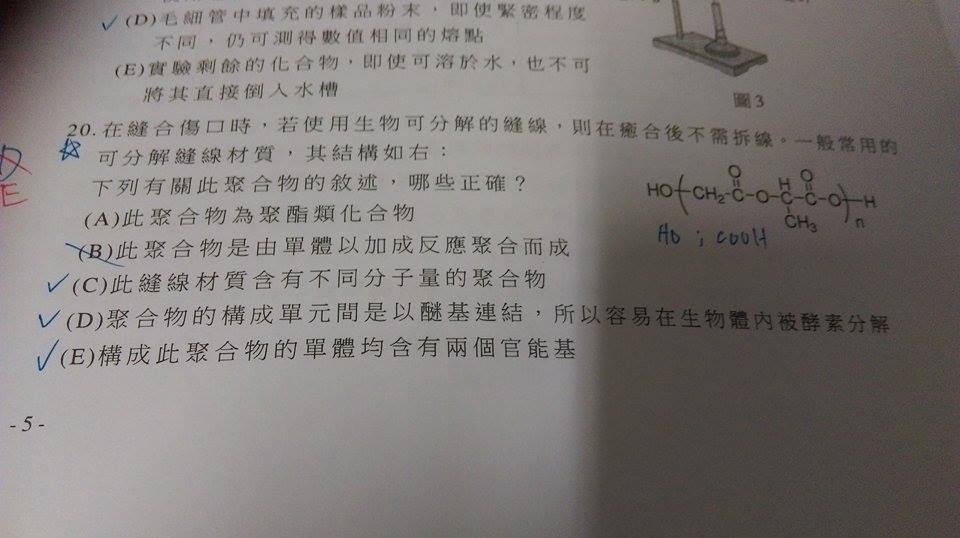 (D)毛細管中填充的樣品粉末，即使緊密程度
不同，仍可測得數值相同的熔點
(E)實驗剩餘的化合物，即使可溶於水，也不可
將其直接倒入水槽
圖3
20.在縫合傷口時，若使用生物可分解的縫線，則在癒合後不需拆線。一般常用的
可分解縫線材質，其結構如右：
下列有關此聚合物的敘述，哪些正確？
HO CH2-C-O-C-C-O n H
O H O
CH3
HO ; COOH
(A)此聚合物為聚酯類化合物
(B)此聚合物是由單體以加成反應聚合而成
(C)此縫線材質含有不同分子量的聚合物
(D)聚合物的構成單元間是以醚基連結，所以容易在生物體內被酵素分解
(E)構成此聚合物的單體均含有兩個官能基
E
- 5 -